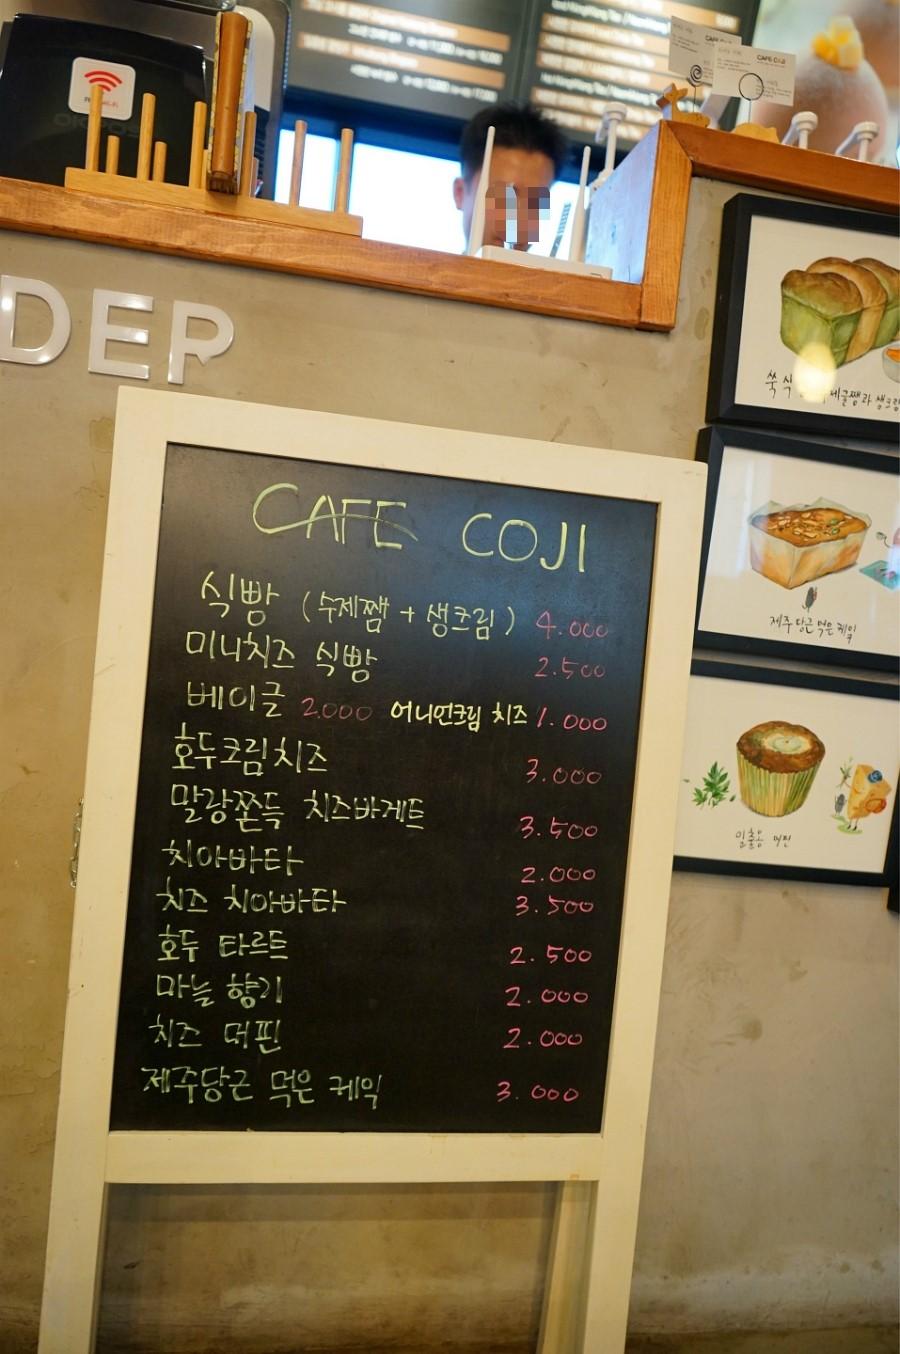 DER
CAFE COJI
CAFE COJI
식빵 (수제쨈 + 생크림) 4.000
미니치즈 식빵 2.500
베이글 2.000 어니언크림 치즈 1.000
호두크림치즈 3.000
말랑쫀득 치즈바게트 3.500
치아바타 2.000
치즈 치아바타 3.500
호두 타르트 2.500
마늘 향기 2.000
치즈 머핀 2.000
제주당근 먹은 케익 3.000
쑥 식
생크림
제주 당근 먹은 케익
머핀